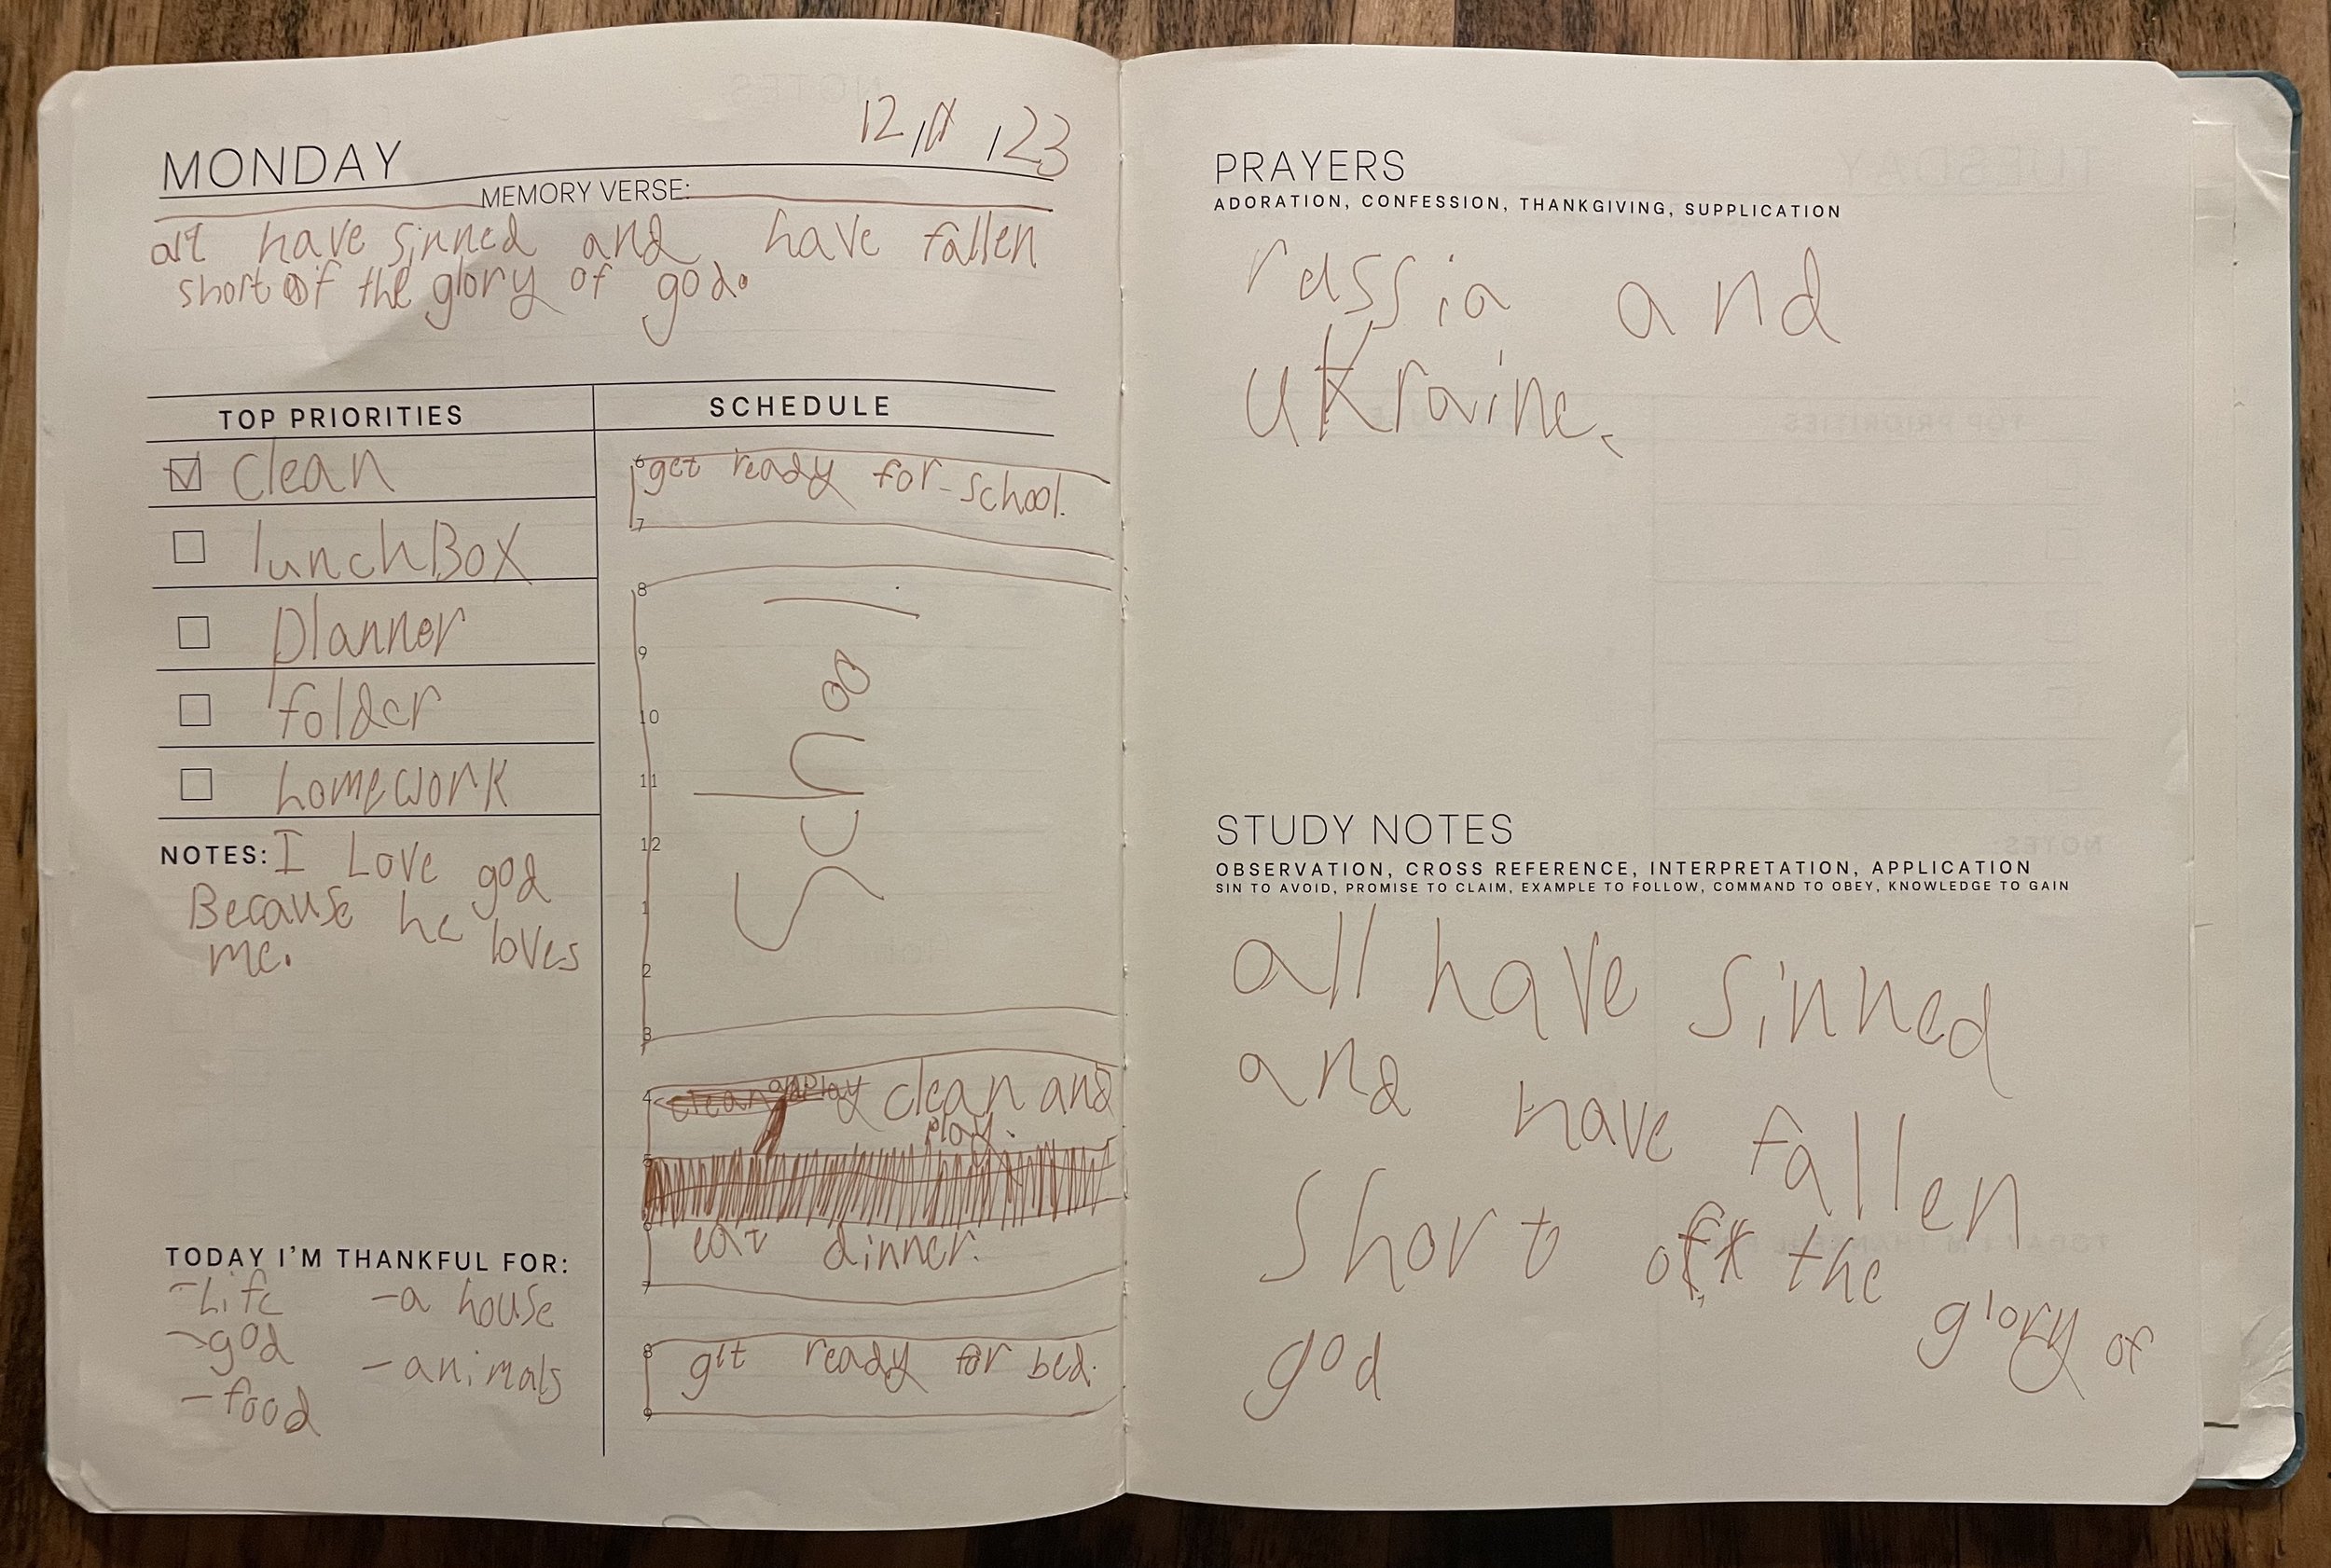 MONDAY
12/ /23
MEMORY VERSE:
all have sinned and have fallen
short of the glory of god.
TOP PRIORITIES
clean
lunchBox
Planner
folder
homework
NOTES: I Love god
Because he loves
me.
TODAY I'M THANKFUL FOR:
-Life
-god
-food
-a house
-animals
SCHEDULE
6 get ready for school.
7
8
9
10
11
12
1
2
3
School
4 clean and
play.
5
6
eat dinner.
7
8 get ready for bed.
9
PRAYERS
ADORATION, CONFESSION, THANKGIVING, SUPPLICATION
russia and
ukraine.
STUDY NOTES
OBSERVATION, CROSS REFERENCE, INTERPRETATION, APPLICATION
SIN TO AVOID, PROMISE TO CLAIM, EXAMPLE TO FOLLOW, COMMAND TO OBEY, KNOWLEDGE TO GAIN
all have sinned
and have fallen
short of the
glory of
god